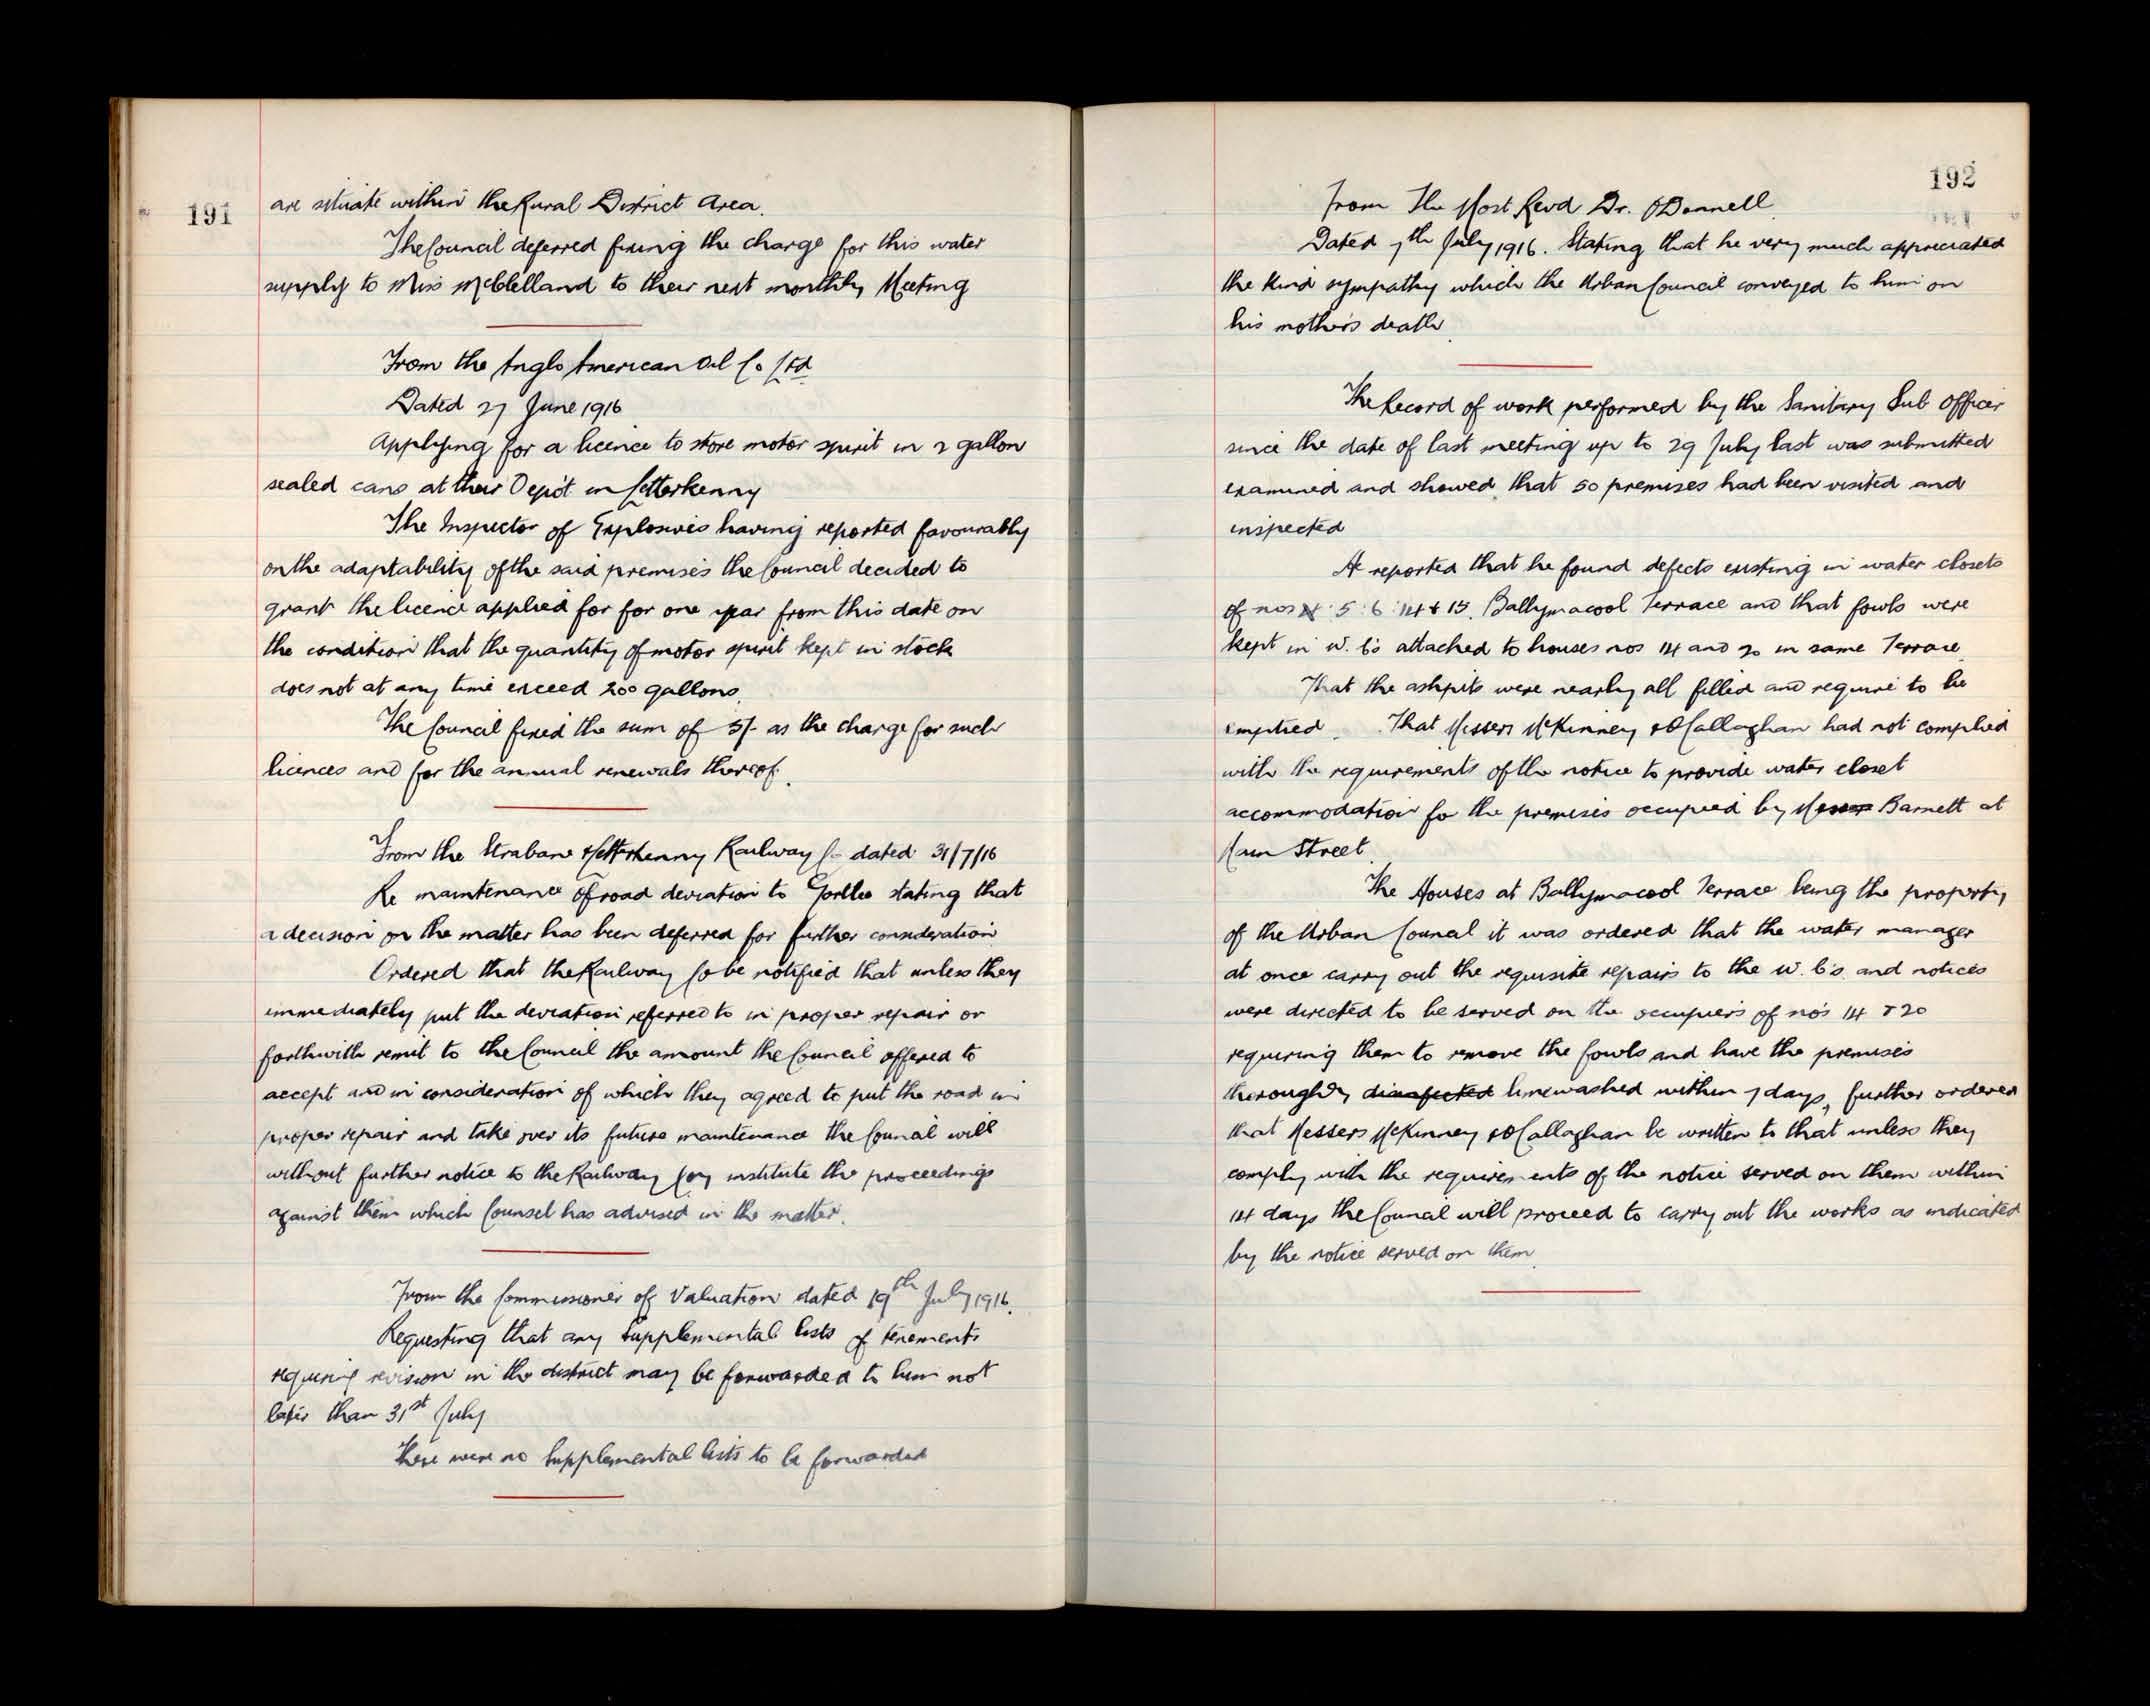 191
are situate within the Rural District Area.
The Council deferred fixing the charge for this water
supply to Miss McClelland to their next monthly Meeting
From the Anglo American Oil Co Ltd
Dated 27 June 1916
Applying for a licence to store motor spirit in 2 gallon
sealed cans at their Depôt in Letterkenny
The Inspector of Explosives having reported favourably
on the adaptability of the said premises the Council decided to
grant the licence applied for for one year from this date on
the condition that the quantity of motor spirit kept in stock
does not at any time exceed 200 gallons.
The Council fixed the sum of 5/- as the charge for such
licences and for the annual renewals thereof.
From the Strabane & Letterkenny Railway Co dated 31/7/16
Re maintenance of road deviation to Gortlee stating that
a decision on the matter has been deferred for further consideration
Ordered that the Railway Co be notified that unless they
immediately put the deviation referred to in proper repair or
forthwith remit to the Council the amount the Council offered to
accept and in consideration of which they agreed to put the road in
proper repair and take over its future maintenance the Council will
without further notice to the Railway Coy institute the proceedings
against them which Counsel has advised in the matter.
From the Commissioner of Valuation dated 19th July 1916.
Requesting that any Supplemental lists of tenements
requiring revision in the district may be forwarded to him not
later than 31st July
There were no Supplemental lists to be forwarded
192
From The Most Revd Dr. O'Donnell
Dated 7th July 1916. Stating that he very much appreciated
the kind sympathy which the Urban Council conveyed to him on
his mother's death.
The Record of work performed by the Sanitary Sub Officer
since the date of last meeting up to 29 July last was submitted
examined and showed that 50 premises had been visited and
inspected
He reported that he found defects existing in water closets
of nos 5: 6: 14 & 15. Ballymacool Terrace and that fowls were
kept in W. C's attached to houses nos 14 and 20 in same Terrace
That the ashpits were nearly all filled and require to be
emptied. That Messers McKinney & O'Callaghan had not complied
with the requirements of the notice to provide water closet
accommodation for the premises occupied by Messrs Barnett at
Main Street.
The Houses at Ballymacool Terrace being the property
of the Urban Council it was ordered that the water manager
at once carry out the requisite repairs to the W. C's. and notices
were directed to be served on the occupiers of no's 14 & 20
requiring them to remove the fowls and have the premises
thoroughly disinfected limewashed within 7 days, further ordered
that Messers McKinney & O'Callaghan be written to that unless they
comply with the requirements of the notice served on them within
14 days the Council will proceed to carry out the works as indicated
by the notice served on them.